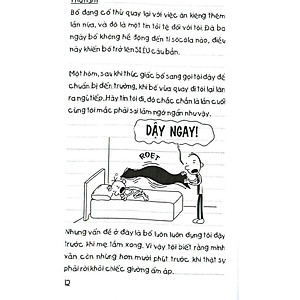 Bố đang cố thử quay lại với việc ăn kiêng thêm
lần nữa, và đó là một tin tồi tệ đối với tôi. Đã ba
ngày bố không hề động đến tí sôcôla nào, điều
này khiến bố trở lên SIÊU cáu bẳn.
Một hôm, sau khi thức giấc bố sang gọi tôi dậy để
chuẩn bị đến trường, khi bố vừa quay đi tôi lại lăn
ra ngủ tiếp. Hãy tin tôi đi, đó chắc chắn là lần cuối
cùng tôi mắc phải sai lầm ngớ ngẩn như vậy.
DẬY NGAY!
ROẸT
Nhưng vấn đề ở đây là bố luôn luôn dựng tôi dậy
trước khi mẹ tắm xong. Vì vậy tôi biết rằng mình
vẫn còn những hơn mười phút trước khi thật sự
phải rời khỏi chiếc giường ấm áp.
12